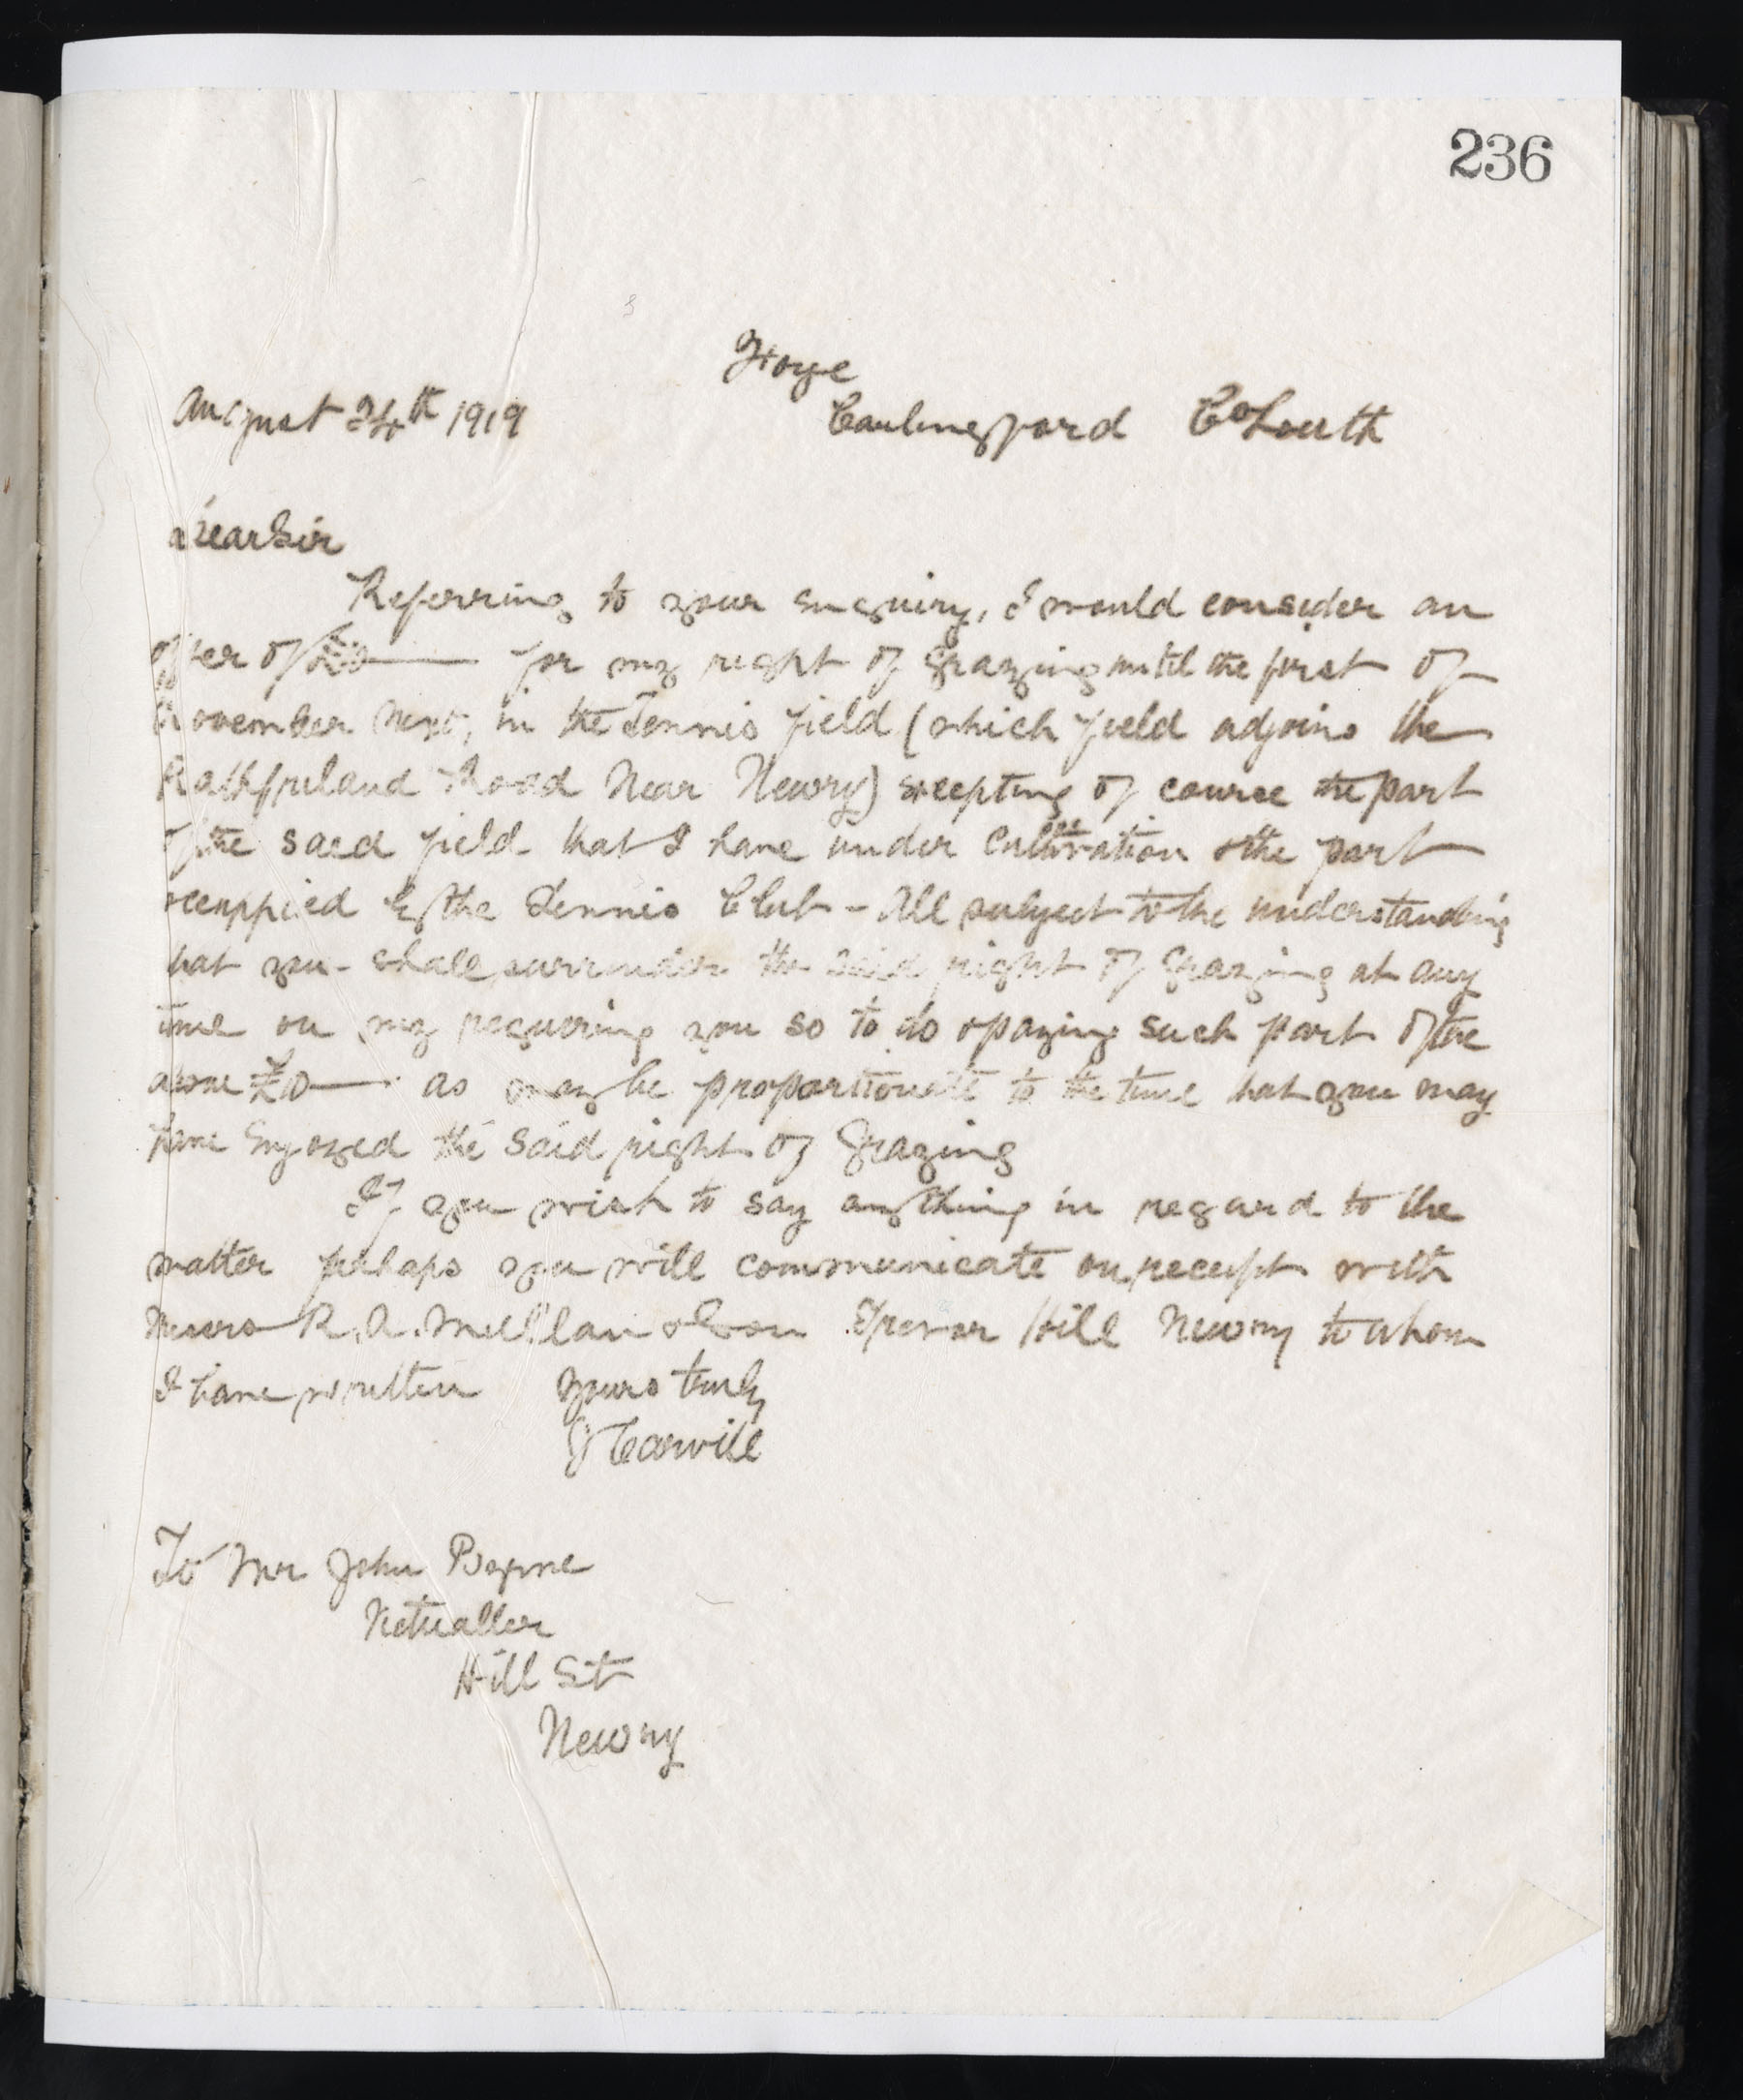 236
August 24th 1919
Carlingford Co Louth
Dear Sir
Referring to your enquiry, I would consider an
offer of £10 — for my right of grazing until the first of
November next, in the Tennis field (which field adjoins the
Rathfriland Road Near Newry) excepting of course the part
of the said field that I have under Cultivation & the part
occuppied by the Tennis Club - All subject to the understanding
that you shall surrender the said right of Grazing at any
time on my requiring you so to do & paying such part of the
above £10 — as may be proportionate to the time that you may
have Enjoyed the said right of Grazing
If you wish to say anything in regard to the
matter perhaps you will communicate on receipt with
Messrs R. A. Mullan & Son Trevor Hill Newry to whom
I have written Yours truly
J Carvill
To Mr John Byrne
Victualler
Hill St
Newry